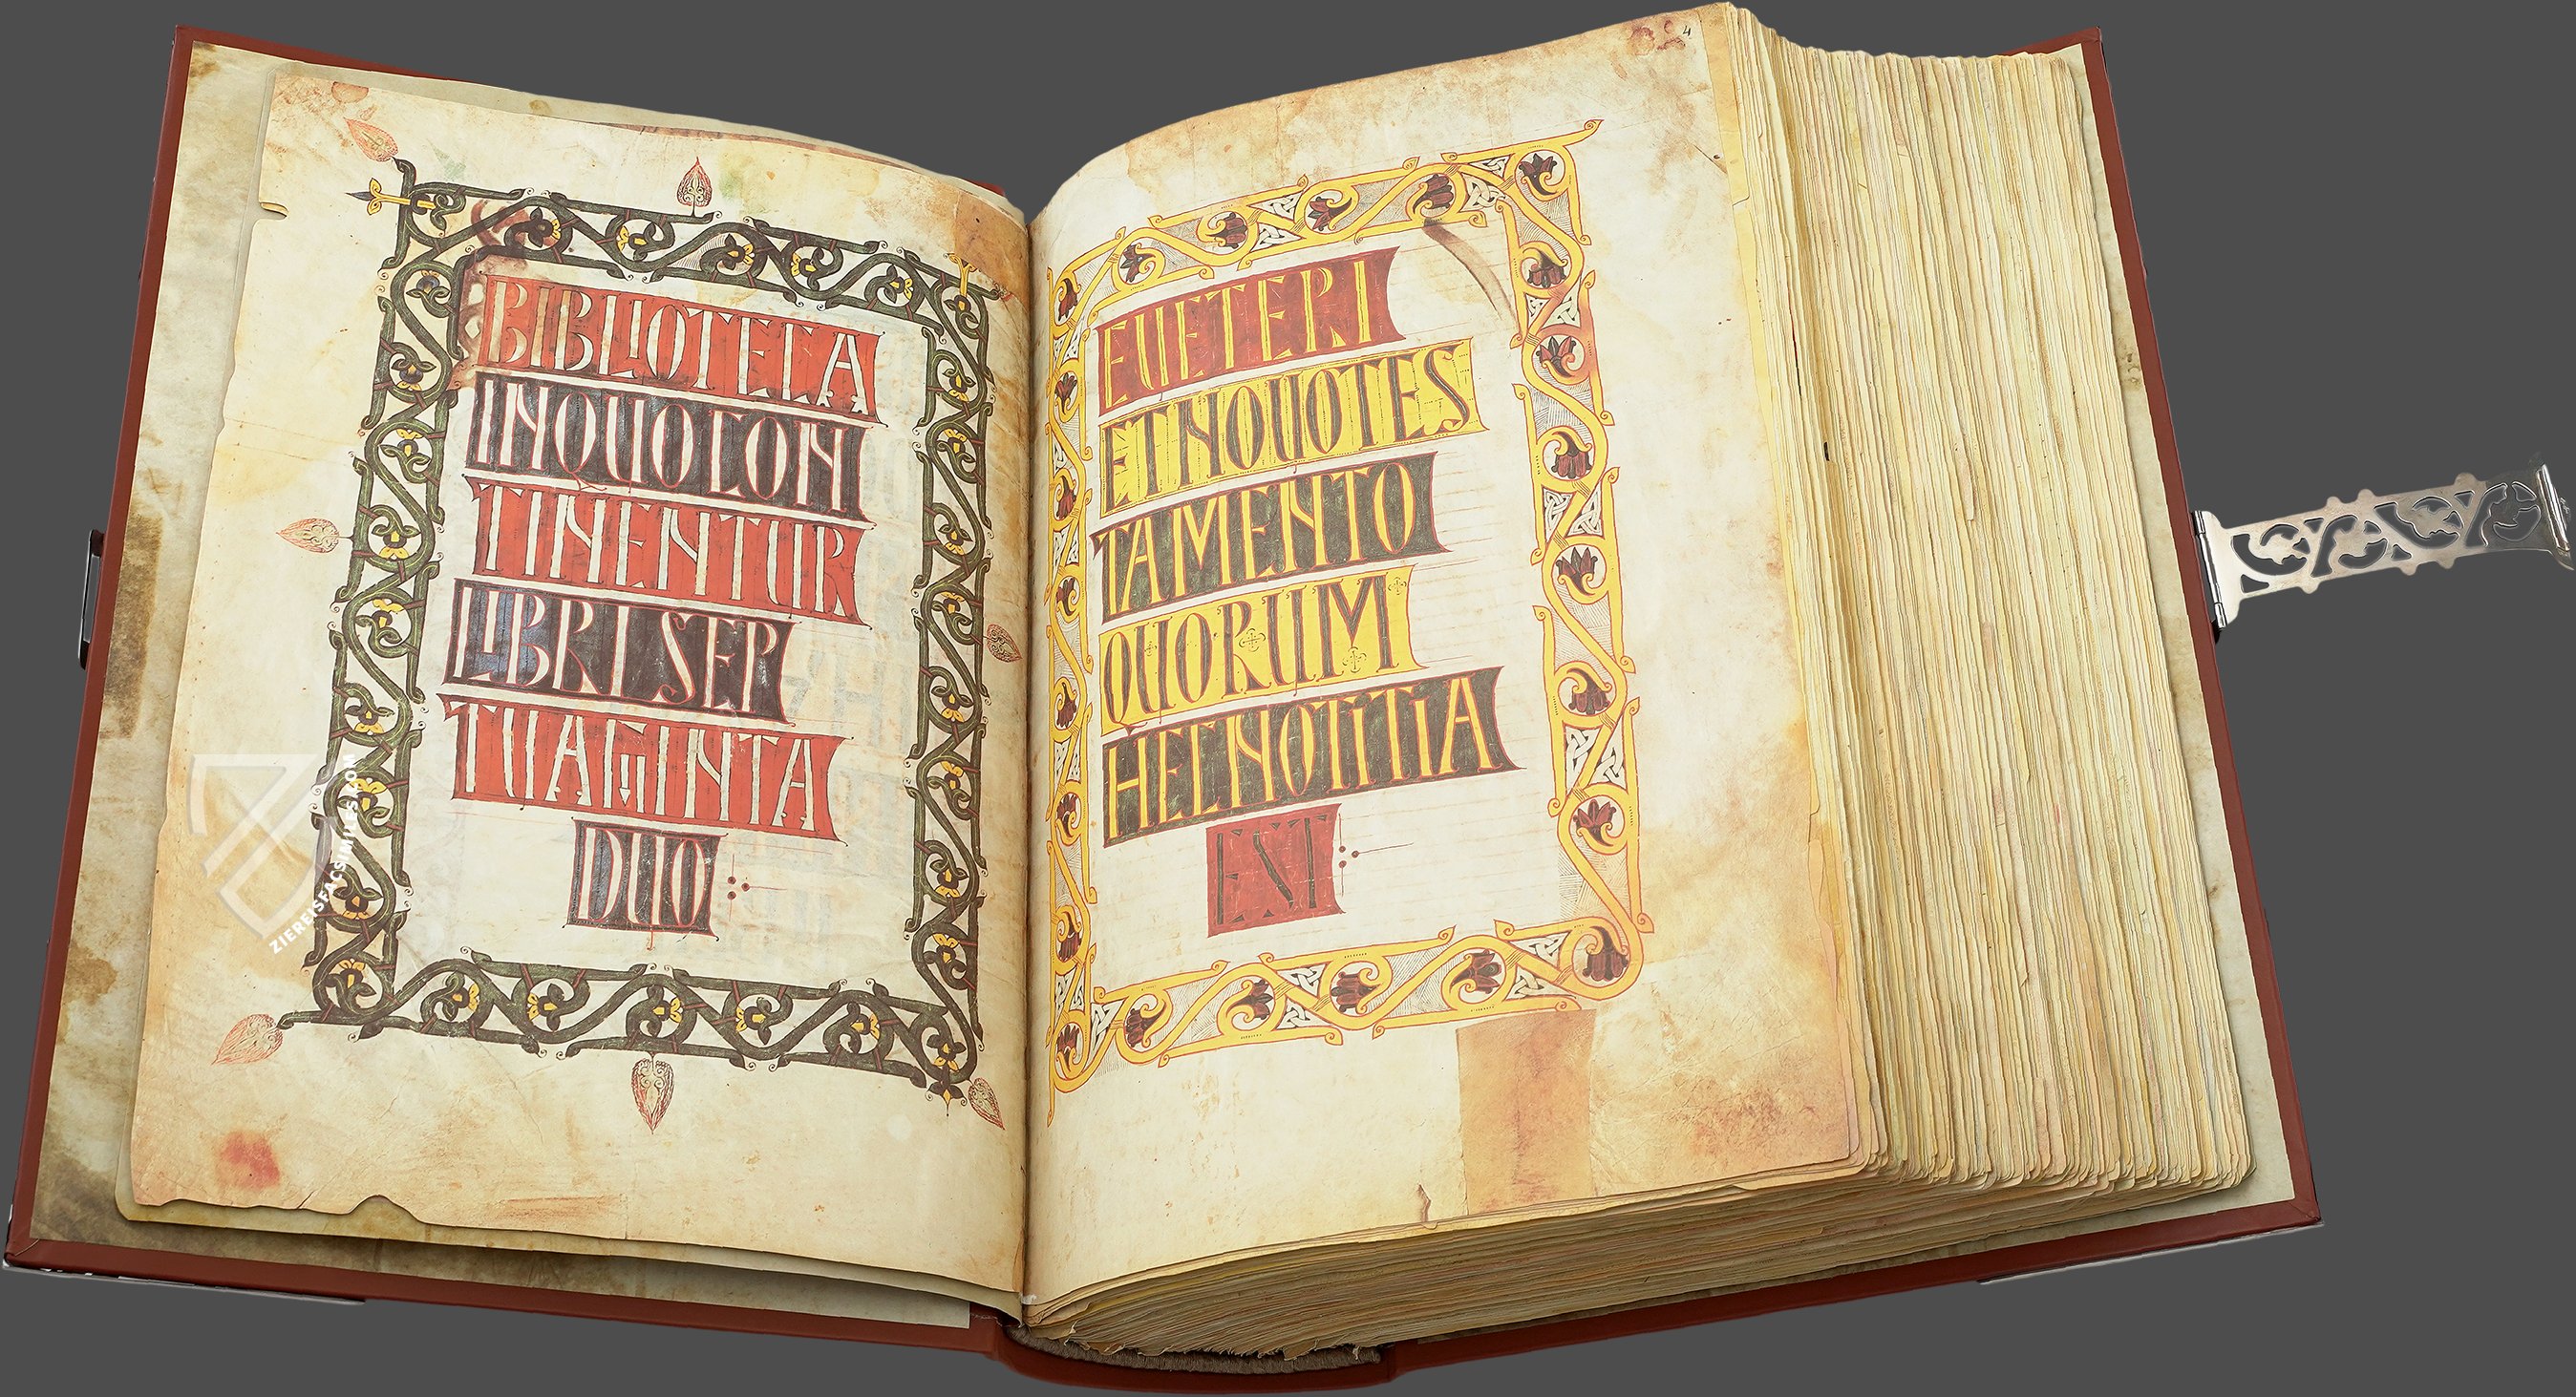 BIBLIOTECA
INQUOCON
TINENTUR
LIBRI SEP
TUAGINTA
DUO
4
EUETERI
ETNOUOTES
TAMENTO
QUORUM
HECNOTITIA
EST
ZIEREISFACSIMILES.COM